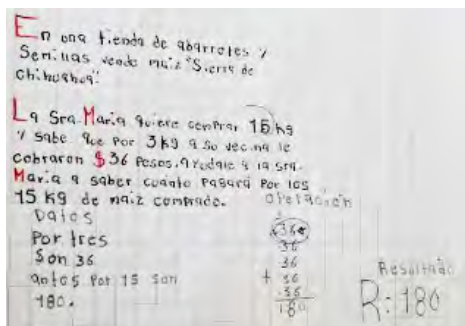 En ona tienda de abarrotes y
Semillas vende maiz "Sierra de
chihuahua".
La Sra. Maria quiere comprar 15 kg
y sabe que por 3 kg a su vecina le
cobraron $36 Pesos. ayudale a la sra.
Maria a saber cuánto Pagará Por los
15 kg de maiz comprado.
operación
Datos
Por tres
Son 36
antos Por 15 Son
180.
36
36
36
+ 36
36
180
Resultado
R: 180